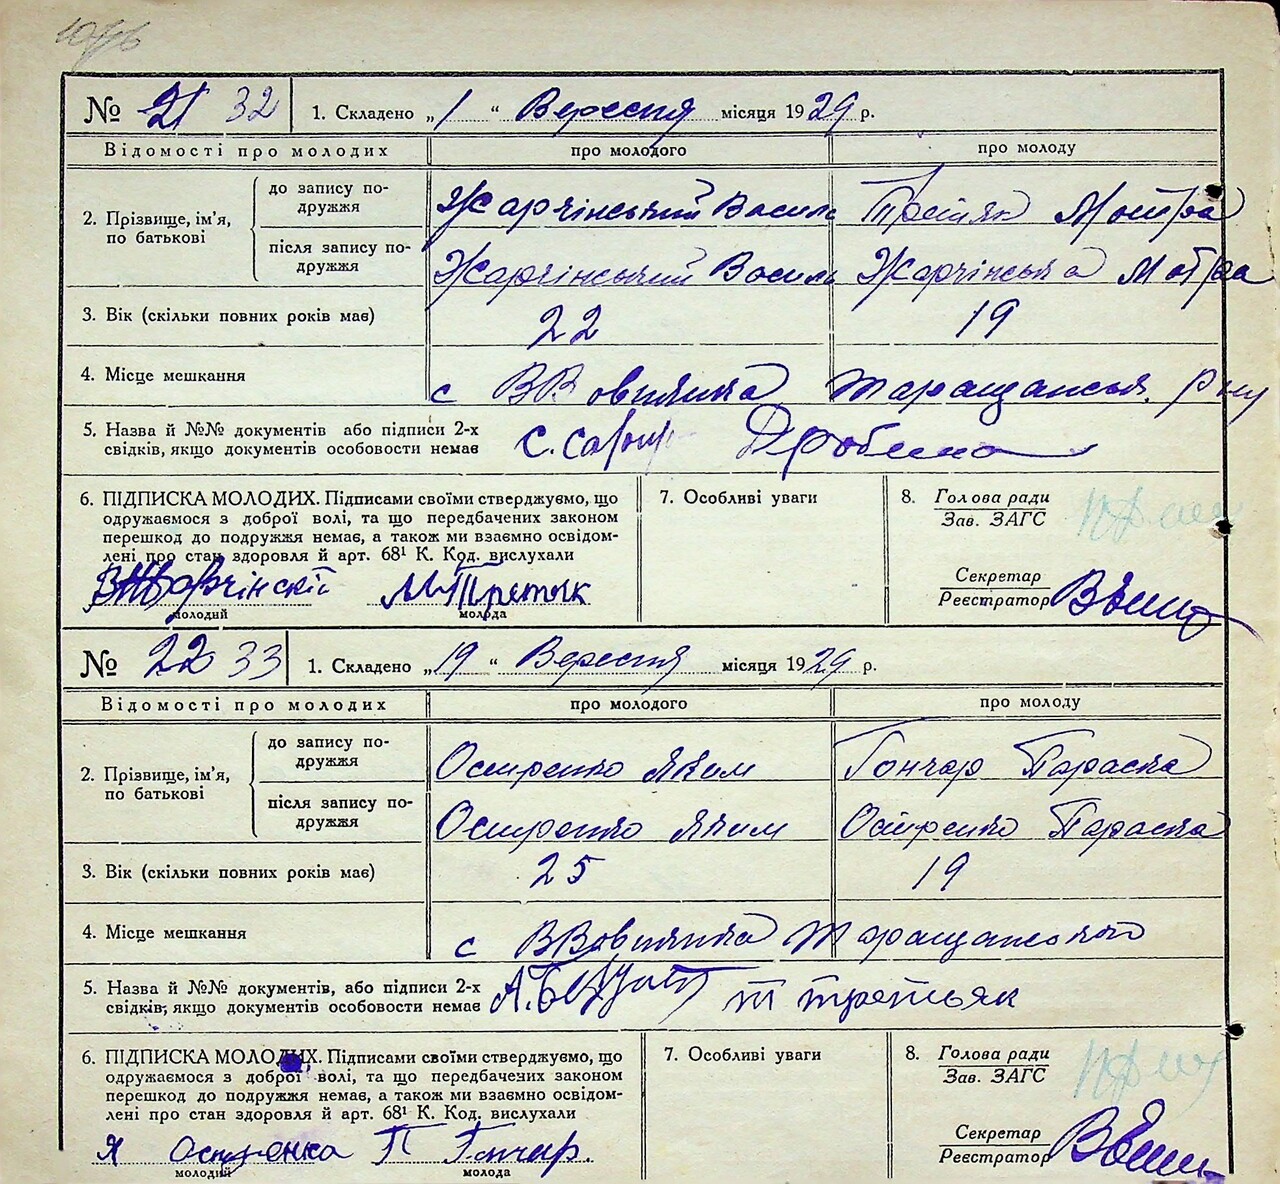 № 21 32 1. Складено „1“ Вересня місяця 1929 р.
Відомості про молодих про молодого про молоду
2. Прізвище, ім’я, по батькові
до запису подружжя
Жарчінський Василь Третяк Мотря
після запису подружжя
Жарчінський Василь Жарчінська Мотря
3. Вік (скільки повних років має) 22 19
4. Місце мешкання с ВВовнянка Таращанськ. р-ну
5. Назва й №№ документів або підписи 2-х
свідків, якщо документів особовости немає
6. ПІДПИСКА МОЛОДИХ. Підписами своїми стверджуємо, що
одружаємося з доброї волі, та що передбачених законом
перешкод до подружжя немає, а також ми взаємно освідом-
лені про стан здоровля й арт. 68¹ К. Код. вислухали
В Жарчінскій М Третяк
молодий молода
7. Особливі уваги
8. Голова ради
Зав. ЗАГС
Секретар
Реєстратор
№ 22 33 1. Складено „19“ Вересня місяця 1929 р.
Відомості про молодих про молодого про молоду
2. Прізвище, ім’я, по батькові
до запису подружжя
Остренко Яким Гончар Параска
після запису подружжя
Остренко Яким Остренко Параска
3. Вік (скільки повних років має) 25 19
4. Місце мешкання с ВВовнянка Таращанського
5. Назва й №№ документів, або підписи 2-х
свідків, якщо документів особовости немає Т Третьяк
6. ПІДПИСКА МОЛОДИХ. Підписами своїми стверджуємо, що
одружаємося з доброї волі, та що передбачених законом
перешкод до подружжя немає, а також ми взаємно освідом-
лені про стан здоровля й арт. 68¹ К. Код. вислухали
Я Остренка П Гончар.
молодий молода
7. Особливі уваги
8. Голова ради
Зав. ЗАГС
Секретар
Реєстратор